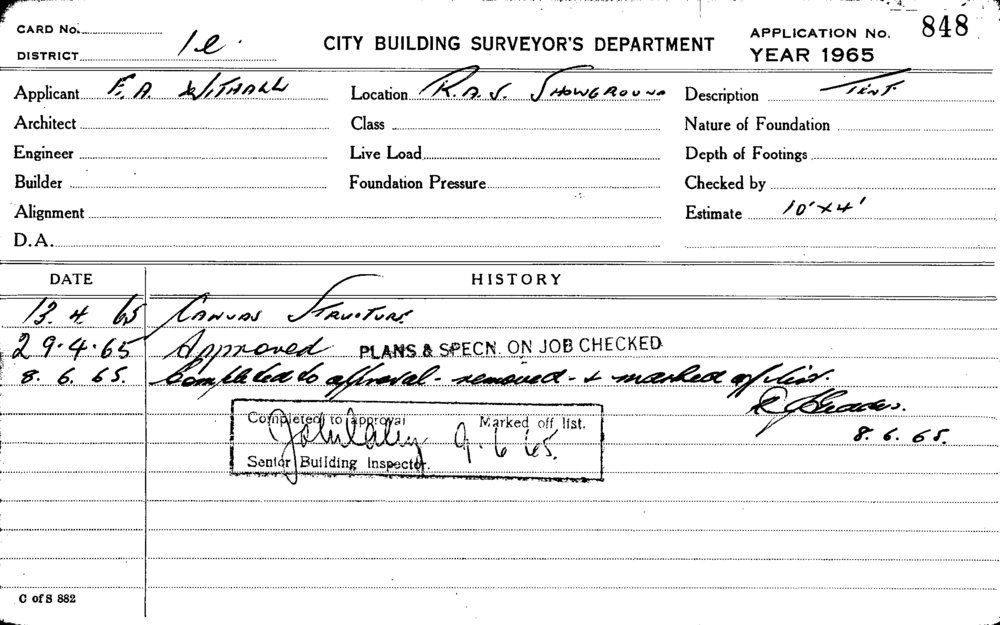 CARD No.
DISTRICT 1e.
CITY BUILDING SURVEYOR'S DEPARTMENT
APPLICATION No. 848
YEAR 1965
Applicant F. A. WITHALL Location R.A.S. SHOWGROUND Description TENT.
Architect Class Nature of Foundation
Engineer Live Load Depth of Footings
Builder Foundation Pressure Checked by
Alignment Estimate 10' x 4'
D.A.
DATE HISTORY
13. 4. 65 CANVAS STRUCTURE.
29.4.65 Approved PLANS & SPECN. ON JOB CHECKED
8. 6. 65. Completed to approval - removed - & marked off list.
8. 6. 65.
Completed to approval Marked off list.
9. 6. 65.
Senior Building Inspector.
C of S 882